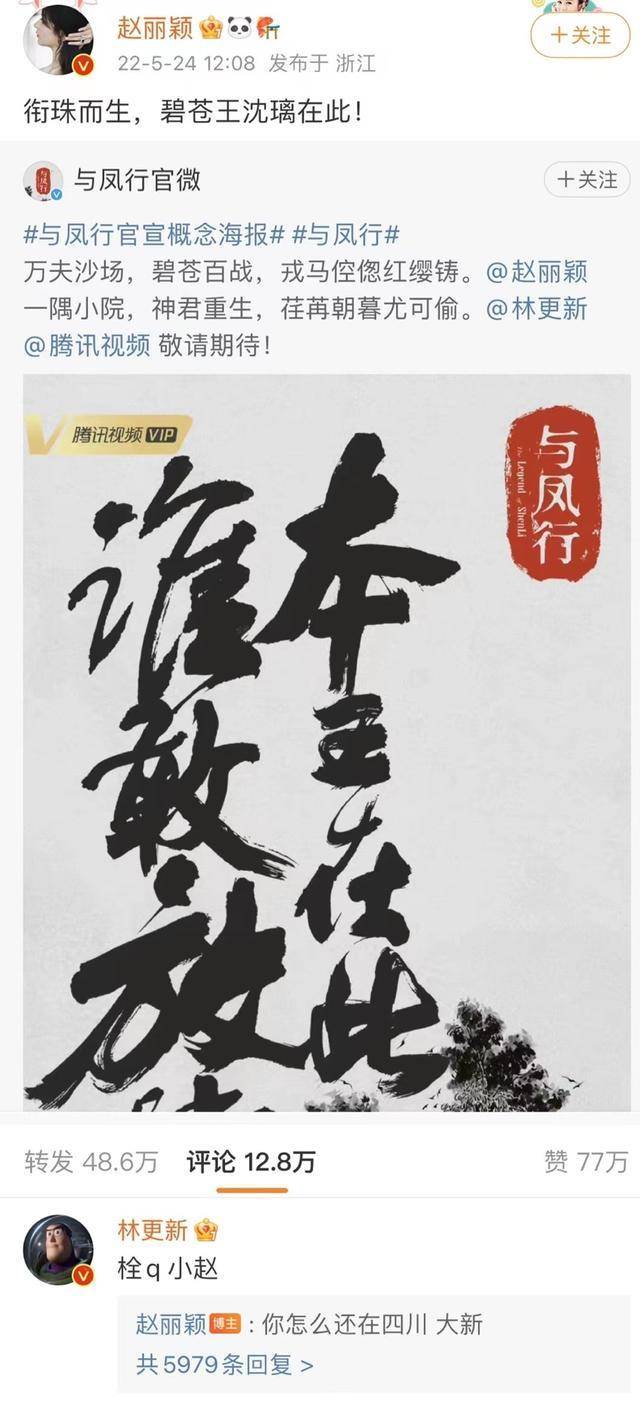 赵丽颖
22-5-24 12:08 发布于 浙江
+关注
衔珠而生，碧苍王沈璃在此！
与凤行官微
+关注
#与凤行官宣概念海报# #与凤行#
万夫沙场，碧苍百战，戎马倥偬红缨铸。@赵丽颖
一隅小院，神君重生，荏苒朝暮尤可偷。@林更新
@腾讯视频 敬请期待！
腾讯视频VIP
与凤行
The Legend of ShenLi
本王在此
谁敢放
转发 48.6万 评论 12.8万 赞 77万
林更新
栓q 小赵
赵丽颖 博主：你怎么还在四川 大新
共5979条回复 >